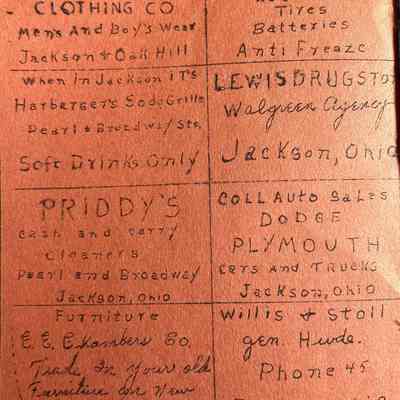 CLOTHING CO
Mens And Boy's Wear
Jackson & Oak Hill
When in Jackson iT's
Harbarger's Soda Grille
Pearl & Broadway Sts.
Soft Drinks Only
PRIDDY'S
Cash and carry
Cleaners
Pearl and Broadway
Jackson, Ohio
Furniture
E. E. Chambers Co.
Trade In Your old
Furniture on New
Tires
Batteries
Anti Freaze
LEWIS DRUG STO
Walgreen Agency
Jackson, Ohio
COLL Auto Sales
DODGE
PLYMOUTH
Cars And Trucks
Jackson, Ohio
Willis & Stoll
gen. Hwde.
Phone 45